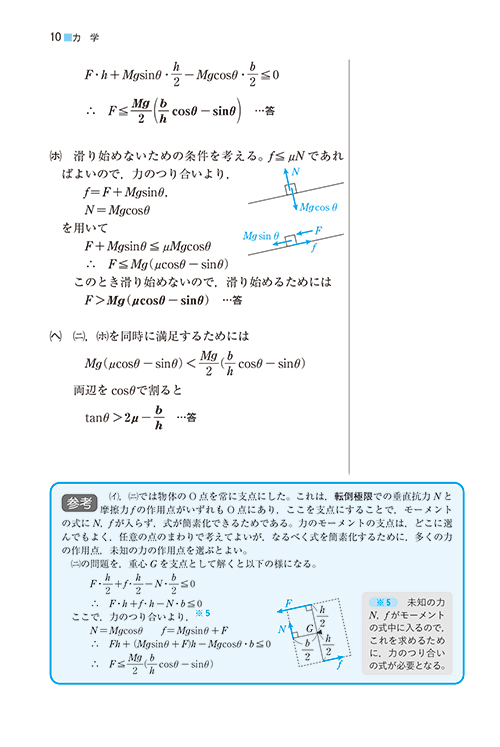 10 ■力　学
F・h＋Mgsinθ・h/2－Mgcosθ・b/2≦0
∴　F≦Mg/2(b/h cosθ－sinθ)　…答
㋭　滑り始めないための条件を考える。f≦μNであれ
ばよいので，力のつり合いより，
f＝F＋Mgsinθ，
N＝Mgcosθ
を用いて
F＋Mgsinθ≦μMgcosθ
∴　F≦Mg(μcosθ－sinθ)
このとき滑り始めないので，滑り始めるためには
F＞Mg(μcosθ－sinθ)　…答
N
Mgcosθ
Mgsinθ
F
f
㋬　㋥，㋭を同時に満足するためには
Mg(μcosθ－sinθ)＜Mg/2(b/h cosθ－sinθ)
両辺をcosθで割ると
tanθ＞2μ－b/h　…答
参考
㋑，㋥では物体のO点を常に支点にした。これは，転倒極限での垂直抗力Nと
摩擦力fの作用点がいずれもO点にあり，ここを支点にすることで，モーメント
の式にN，fが入らず，式が簡素化できるためである。力のモーメントの支点は，どこに選
んでもよく，任意の点のまわりで考えてよいが，なるべく式を簡素化するために，多くの力
の作用点，未知の力の作用点を選ぶとよい。
㋥の問題を，重心Gを支点として解くと以下の様になる。
F・h/2＋f・h/2－N・b/2≦0
∴　F・h＋f・h－N・b≦0
ここで，力のつり合いより，※5
N＝Mgcosθ　f＝Mgsinθ＋F
∴　Fh＋(Mgsinθ＋F)h－Mgcosθ・b≦0
∴　F≦Mg/2(b/h cosθ－sinθ)
F
h/2
N
G
b/2
h/2
f
※5　未知の力
N，fがモーメント
の式中に入るので，
これを求めるため
に，力のつり合い
の式が必要となる。